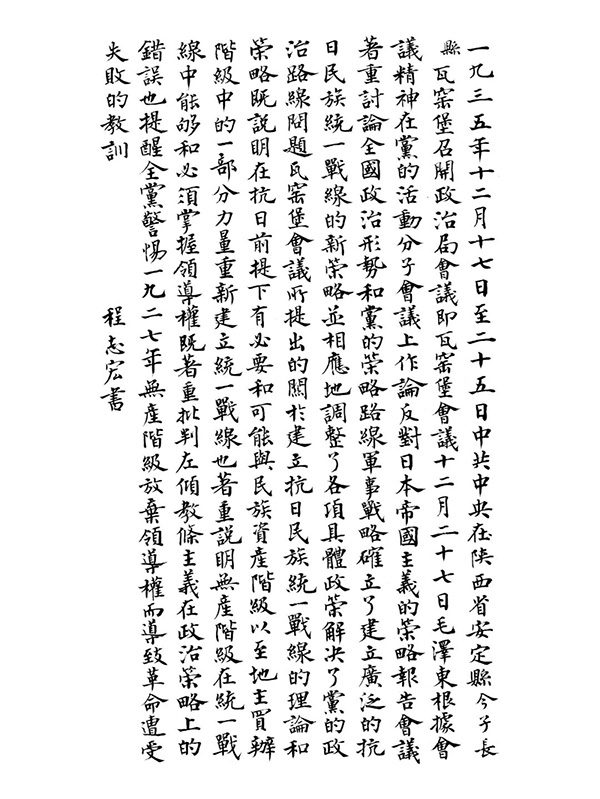 一九三五年十二月十七日至二十五日中共中央在陝西省安定縣今子長
縣瓦窑堡召開政治局會議即瓦窑堡會議十二月二十七日毛澤東根據會
議精神在黨的活動分子會議上作論反對日本帝國主義的策略報告會議
著重討論全國政治形勢和黨的策略路線軍事戰略確立了建立廣泛的抗
日民族統一戰線的新策略並相應地調整了各項具體政策解決了黨的政
治路線問題瓦窑堡會議所提出的關於建立抗日民族統一戰線的理論和
策略既說明在抗日前提下有必要和可能與民族資產階級以至地主買辦
階級中的一部分力量重新建立統一戰線也著重說明無產階級在統一戰
線中能夠和必須掌握領導權既著重批判左傾教條主義在政治策略上的
錯誤也提醒全黨警惕一九二七年無產階級放棄領導權而導致革命遭受
失敗的教訓
程志宏書